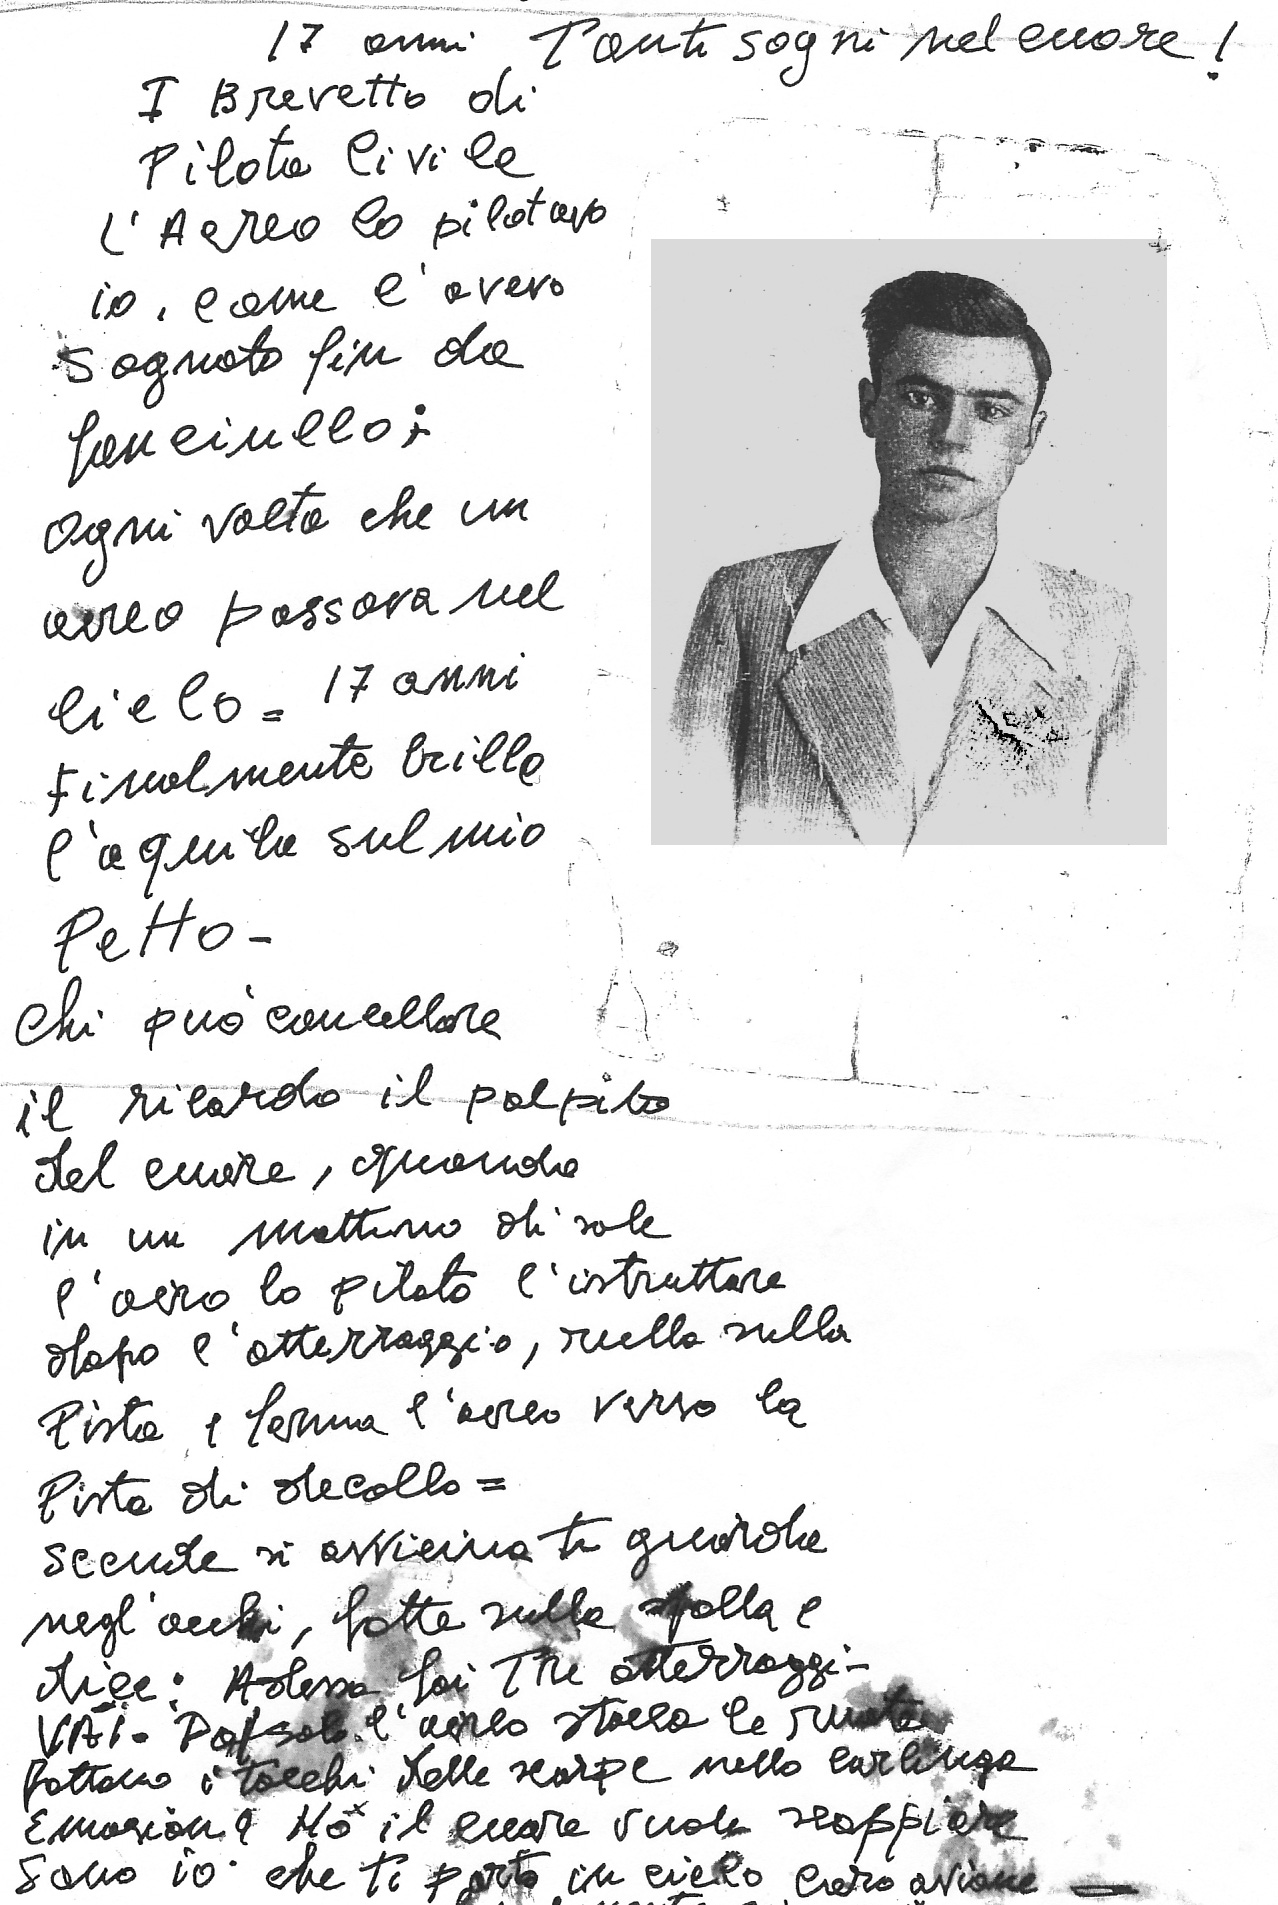 17 anni Tanti sogni nel cuore!
I Brevetto di
Pilota Civile
L'Aereo lo pilotavo
io, come l'avevo
Sognato fin da
fanciullo;
ogni volta che un
aereo passava nel
Cielo = 17 anni
Finalmente brilla
l'aquila sul mio
Petto -
Chi può cancellare
il ricordo il palpito
del cuore, quando
in un mattino di sole
l'aereo lo pilota l'istruttore
dopo l'atterraggio, rulla sulla
Pista e ferma l'aereo verso la
Pista di decollo =
Scende si avvicina ti guarda
negl'occhi, batte sulla spalla e
dice: Adesso fai Tre atterraggi -
VAI. l'aereo stacca le ruote
Battono i tacchi delle scarpe nella carlinga
Emozioni? No il cuore vuole scoppiare
Sono io che ti porto in cielo caro aviane